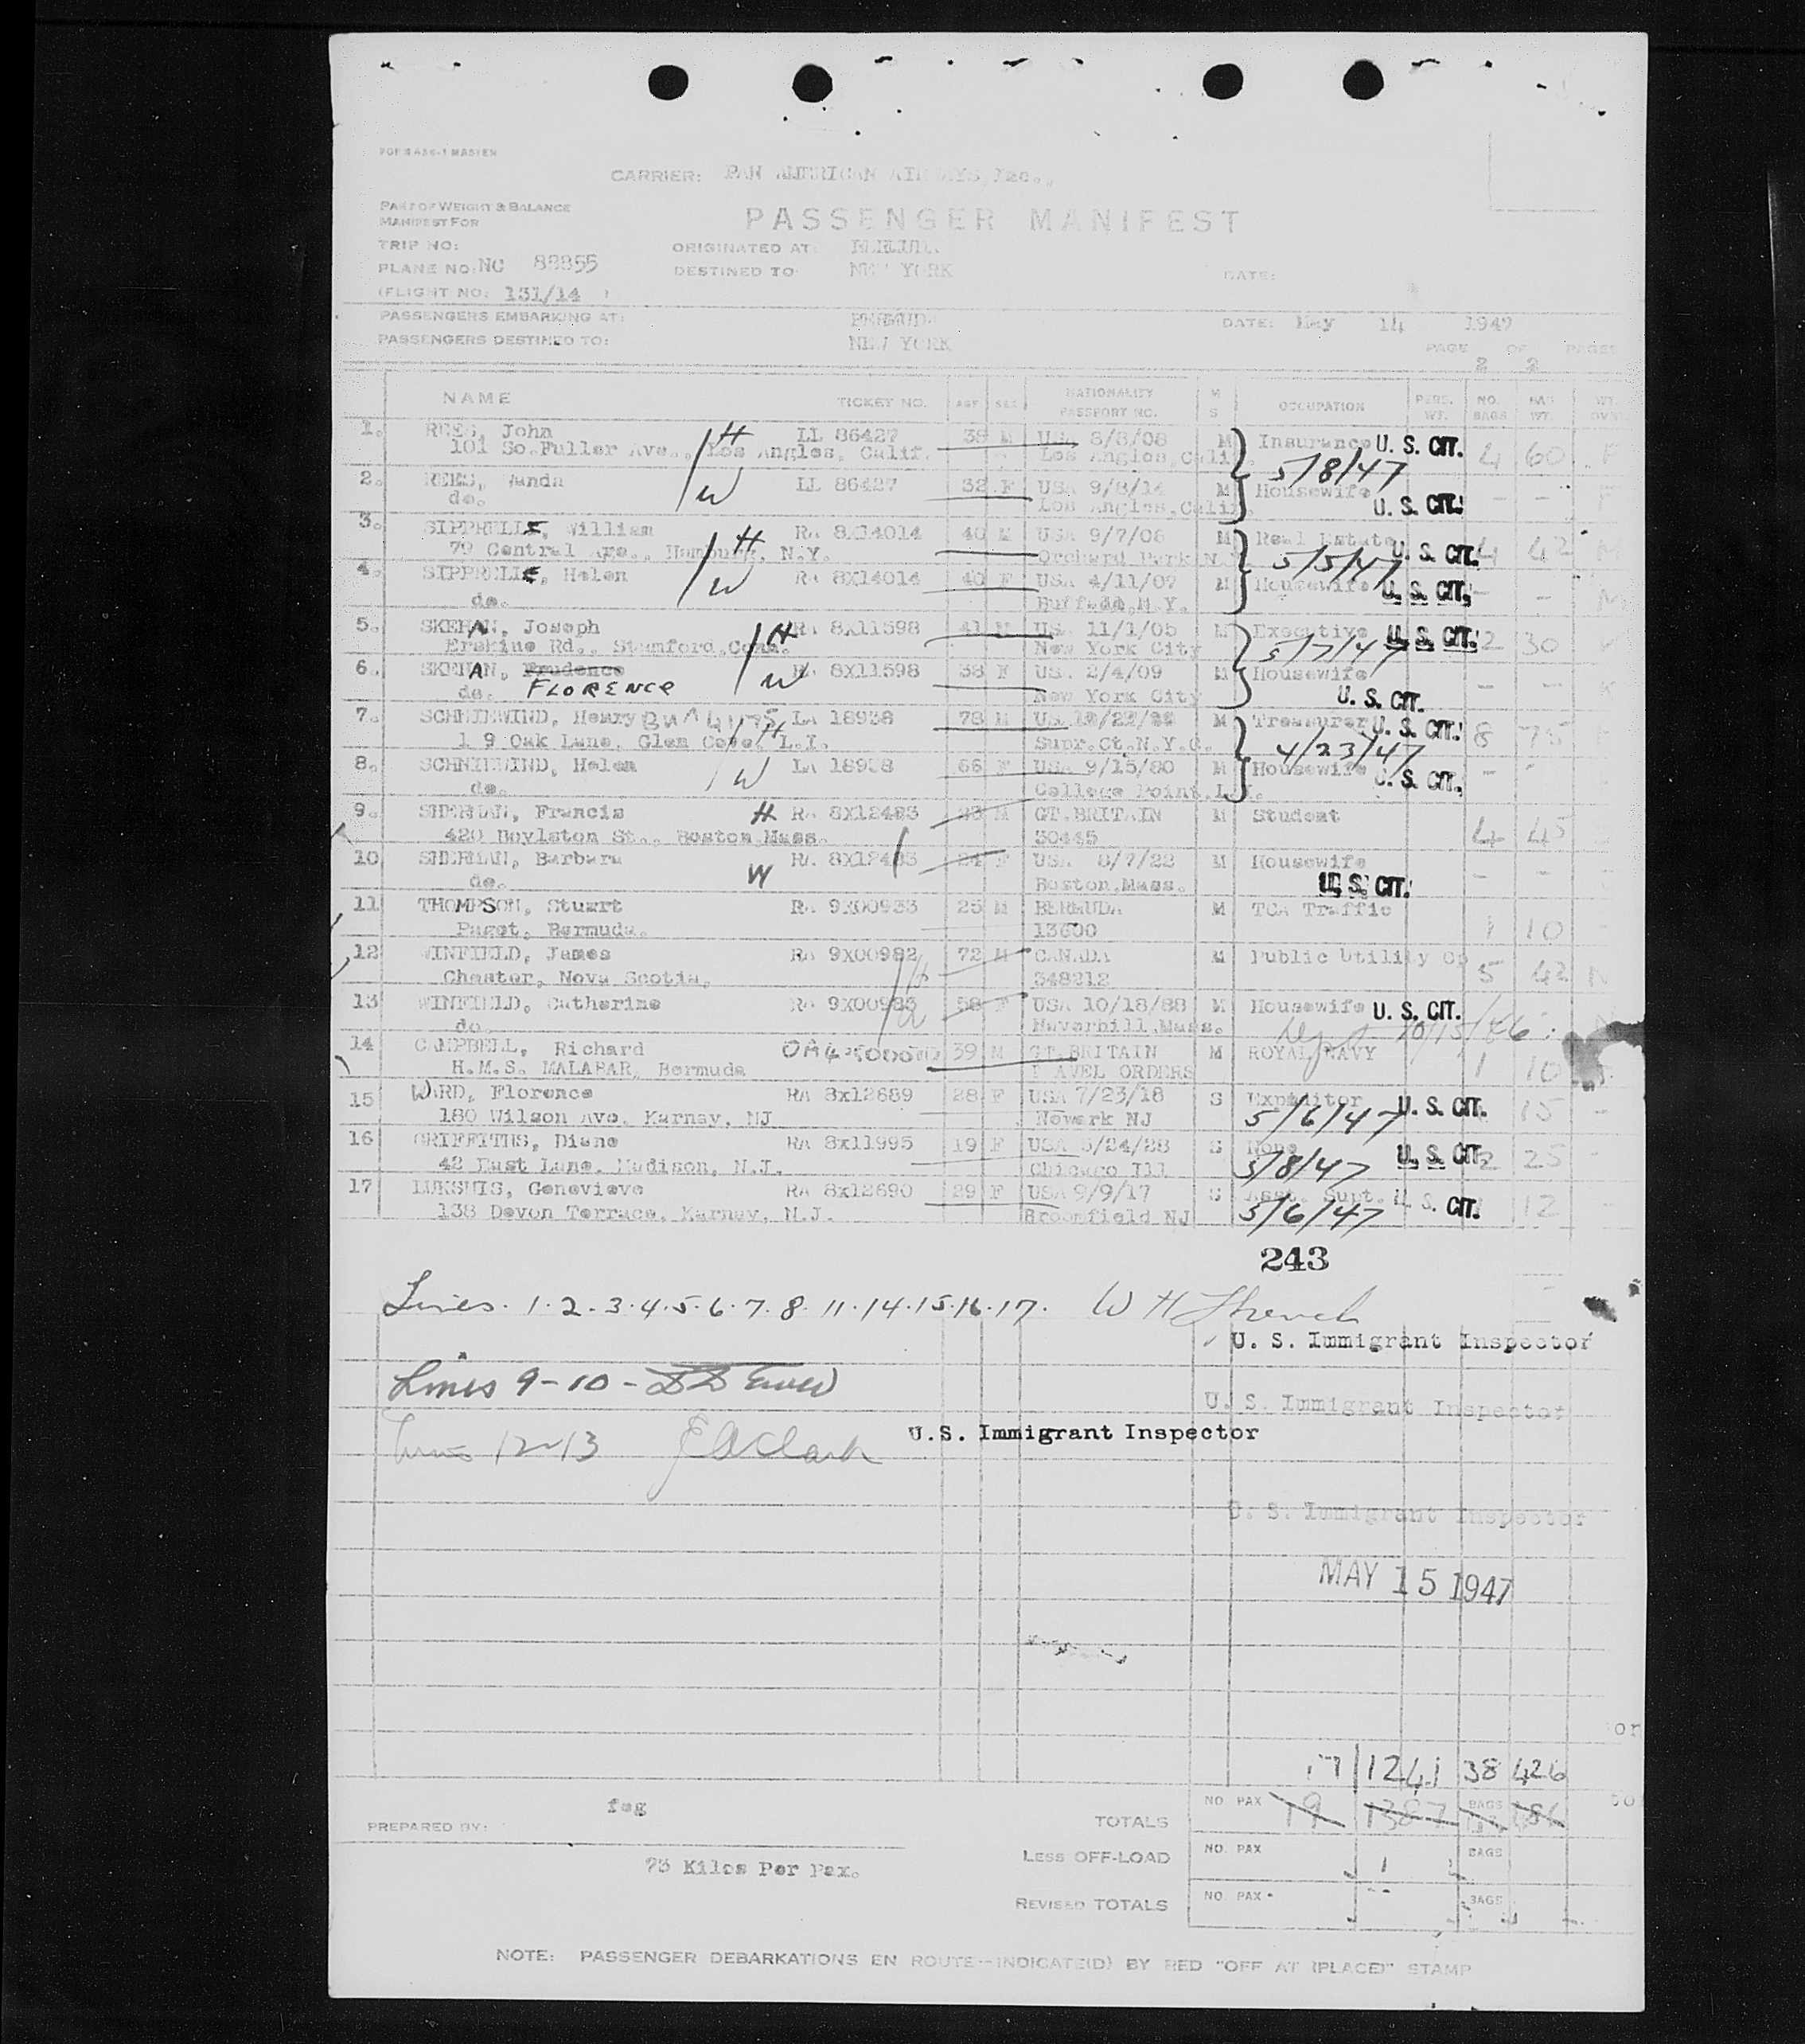 FORM 436-1 MASTER
CARRIER: PAN AMERICAN AIRWAYS, Inc.,
PART OF WEIGHT & BALANCE
MANIFEST FOR
PASSENGER MANIFEST
TRIP NO:
ORIGINATED AT: BERMUDA
PLANE NO: NC 88855
DESTINED TO: NEW YORK
DATE:
(FLIGHT NO: 131/14 )
PASSENGERS EMBARKING AT: BERMUDA DATE: May 14 1947
PASSENGERS DESTINED TO: NEW YORK
PAGE 2 OF 2 PAGES
NAME TICKET NO. AGE SEX NATIONALITY PASSPORT NO. M S OCCUPATION PERS. WT. NO. BAGS BAG WT.
1. REES, John H LL 86427 38 M USA 8/8/08 M Insurance U. S. CIT. 4 60 F
101 So.Fuller Ave., Los Angles, Calif. Los Angles, Calif. 5/8/47
2. REES, Wanda W LL 86427 32 F USA 9/8/14 M Housewife - -
do. Los Angles, Calif. U. S. CIT.
3. SIPPRELLE, William H RA 8X14014 40 M USA 9/7/06 M Real Estate U. S. CIT. 4 42
79 Central Ave., Hamburg, N.Y. Orchard Park N 5/5/47
4. SIPPRELLE, Helen W RA 8X14014 40 F USA 4/11/07 M Housewife U. S. CIT. - -
do. Buffalo, N.Y.
5. SKEHAN, Joseph H RA 8X11598 41 M USA 11/1/05 M Executive U. S. CIT. 2 30
Erskine Rd., Stamford, Conn. New York City 5/7/47
6. SKEHAN, Prudence W RA 8X11598 38 F USA 2/4/09 M Housewife - -
do. FLORENCE New York City U. S. CIT.
7. SCHNIEWIND, Henry LA 18938 78 M M Treasurer U. S. CIT. 8 75
1 9 Oak Lane, Glen Cove, L.I. H Supr.Ct.N.Y.C. 4/23/47
8. SCHNIEWIND, Helen W LA 18938 66 F USA 9/15/80 M Housewife U. S. CIT. - -
do. College Point, L.I.
9. SHERMAN, Francis H RA 8X12483 M GT.BRITAIN M Student
420 Boylston St., Boston, Mass. 30445 4 45
10 SHERMAN, Barbara W RA 8X12483 24 F USA 8/7/22 M Housewife - -
do. Boston, Mass. U. S. CIT.
11 THOMPSON, Stuart RA 9X00933 25 M BERMUDA M TCA Traffic
Paget, Bermuda. 13600 1 10
12 WINFIELD, James RA 9X00982 72 M CANADA M Public Utility Op 5 42 N
Chester, Nova Scotia, H 348212
13 WINFIELD, Catherine RA 9X00983 58 F USA 10/18/88 M Housewife U. S. CIT.
do. W Haverhill, Mass.
14 CAMPBELL, Richard 39 M GT.BRITAIN M ROYAL NAVY
H.M.S. MALABAR, Bermuda TRAVEL ORDERS 1 10
15 WARD, Florence RA 8x12689 28 F USA 7/23/18 S Expeditor U. S. CIT. 15 -
180 Wilson Ave. Karney, NJ Newark NJ 5/6/47
16 GRIFFITHS, Diane RA 8x11995 19 F USA 5/24/28 S None U. S. CIT. 2 25 -
42 East Lane, Madison, N.J. Chicago Ill 5/8/47
17 LUKSHIS, Genevieve RA 8x12690 29 F USA 9/9/17 S Asst. Supt. U. S. CIT. 12 -
138 Devon Terrace, Karney, N.J. Broomfield NJ 5/6/47
243
Lines. 1. 2. 3. 4. 5. 6. 7. 8. 11. 14. 15. 16. 17. W H
U. S. Immigrant Inspector
Lines 9-10-
U. S. Immigrant Inspector
Lines 12-13 Clark U.S. Immigrant Inspector
U. S. Immigrant Inspector
MAY 15 1947
17 1241 38 426
feg
PREPARED BY:
TOTALS NO. PAX 19 1387 BAGS
73 Kilos Per Pax.
LESS OFF-LOAD NO. PAX BAGS
REVISED TOTALS NO. PAX BAGS
NOTE: PASSENGER DEBARKATIONS EN ROUTE--INDICATE(D) BY RED "OFF AT (PLACE)" STAMP